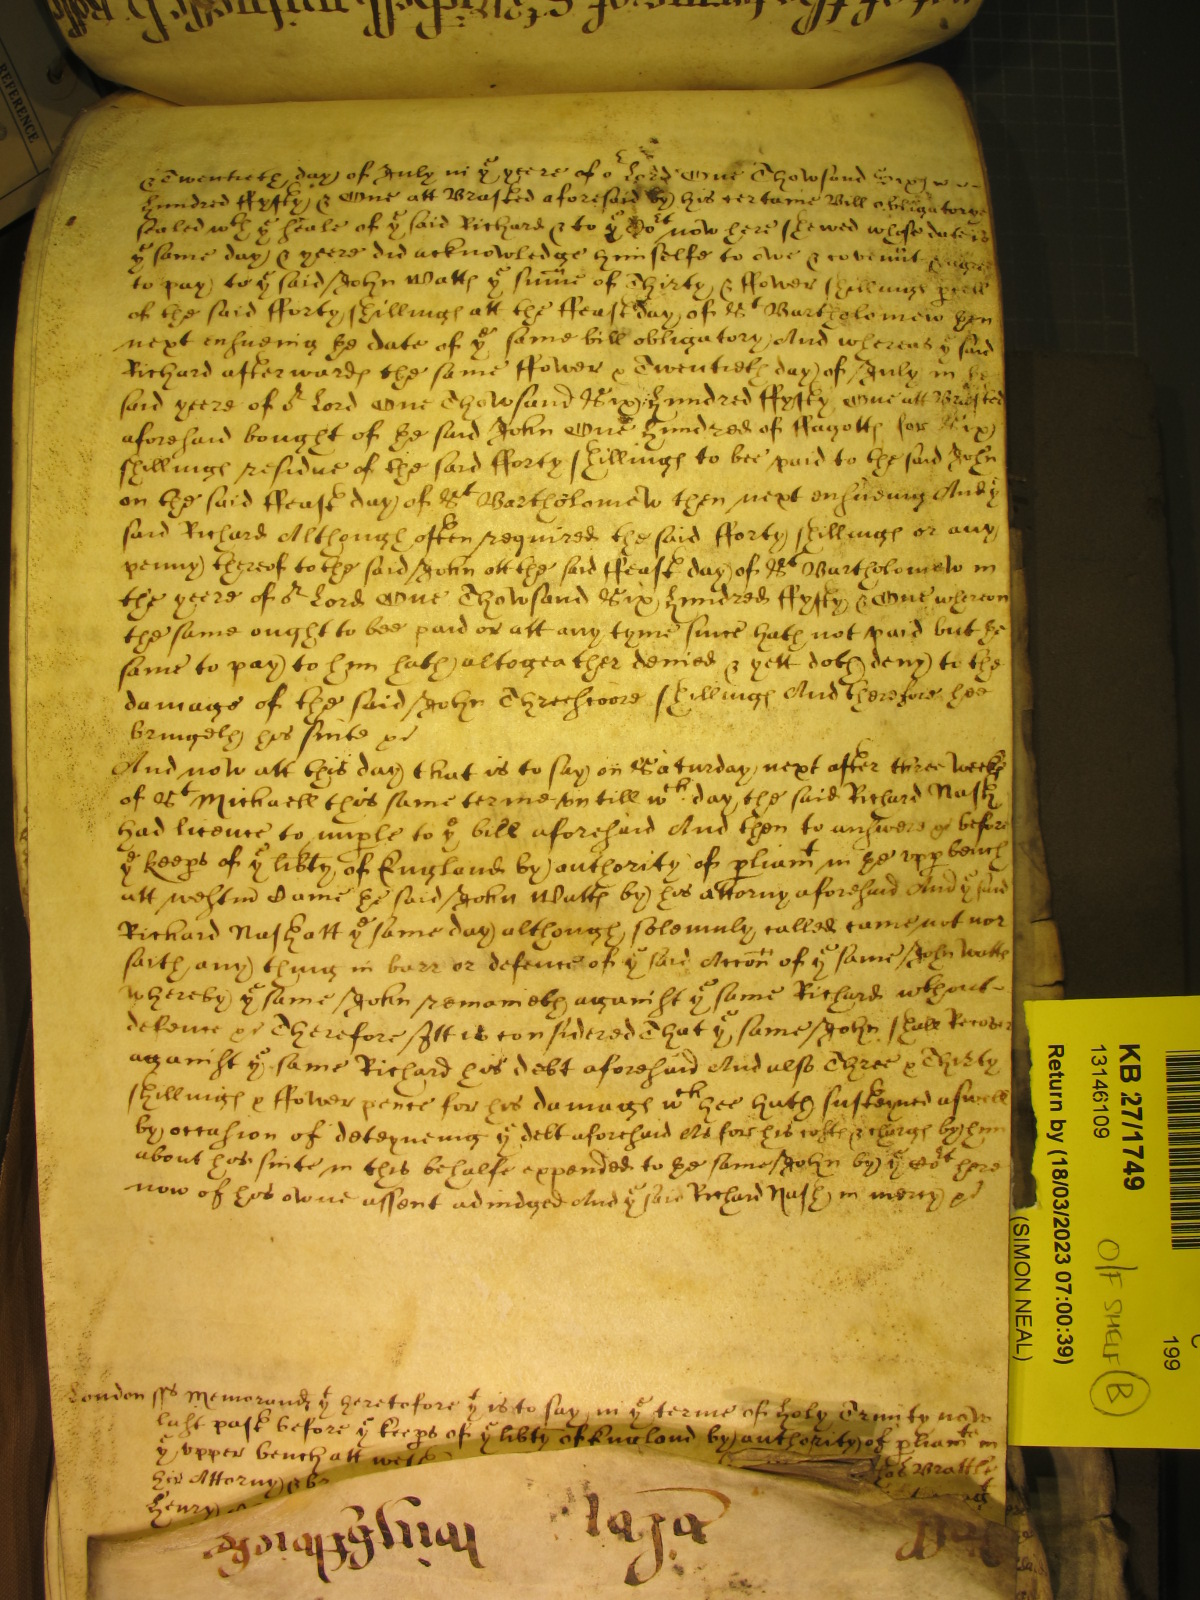 & Twentieth day of July in yͤ yeere of oʳ Lord One Thowsand Six
hundred ffyfty & One att Brasted aforesaid by his certaine Bill obligatorye
sealed wᵗʰ yͤ seale of yͤ said Richard & to yͤ Coʳᵗ now here shewed whose date is
yͤ same day & yeere did acknowledge himselfe to owe & covenᵗ & agree
to pay to yͤ said John Watts yͤ sum̄e of Thirty & ffower shillings pcell
of the said fforty shillings att the ffeast day of Sᵗ Bartholomew then
next ensueing the date of yͤ same bill obligatory And whereas yͤ said
Richard afterwards the same ffower & Twentieth day of July in the
said yeere of oʳ Lord One Thowsand Six hundred ffyfty One att Brasted
aforesaid bought of the said John One hundred of ffagotts for Six
shillings residue of the said fforty shillings to bee paid to the said John
on the said ffeast day of Sᵗ Bartholomew then next ensueing And yͤ
said Richard Although often required the said fforty shillings or any
penny thereof to the said John att the said ffeast day of Sᵗ Bartholomew in
the yeere of oʳ Lord One Thowsand Six hundred ffyfty & One whereon
the same ought to bee paid or att any tyme since hath not paid but the
same to pay to him hath altogeather denied & yett doth deny to the
damage of the said John Threescoore shillings And therefore hee
bringeth his suite &c
And now att this day that is to say on Saturday next after three weeks
of Sᵗ Michaell this same terme untill wᶜʰ day the said Richard Nash
had licence to imple to yͤ bill aforesaid And then to answere &c before
yͤ keeps of yͤ libty of England by authority of pliamᵗ in the upp bench
att westm̄ Came the said John Watts by his attorny aforesaid And yͤ said
Richard Nash att yͤ same day although solemnly called came not nor
saith any thing in barr or defence of yͤ said Accōn of yͤ same John Watts
whereby yͤ same John remaineth against yͤ same Richard wthout
defence &c Therefore Itt is considered That yͤ same John shall Recover
against yͤ same Richard his debt aforesaid And also Three & Thirty
shillings & ffower pence for his damags wᶜʰ hee hath susteyned aswell
by occasion of deteyneing yͤ debt aforesaid As for his costs & chargs by him
about his suite in this behalfe expended to the same John by yͤ Coʳᵗ here
now of his owne assent adiudged And yͤ said Richard Nash in mercy &c
London ss Memorand yᵗ heretofore yᵗ is to say in yͤ terme of holy Trinity now
last past before yͤ keeps of yͤ libty of England by authority of pliamᵗ in
yͤ upper bench att west
his Attorny &
Henry
KB 27/1749
13146109
Return by (18/03/2023 07:00:39)
(SIMON NEAL)
O/F SHELF B
199
REFERENCE